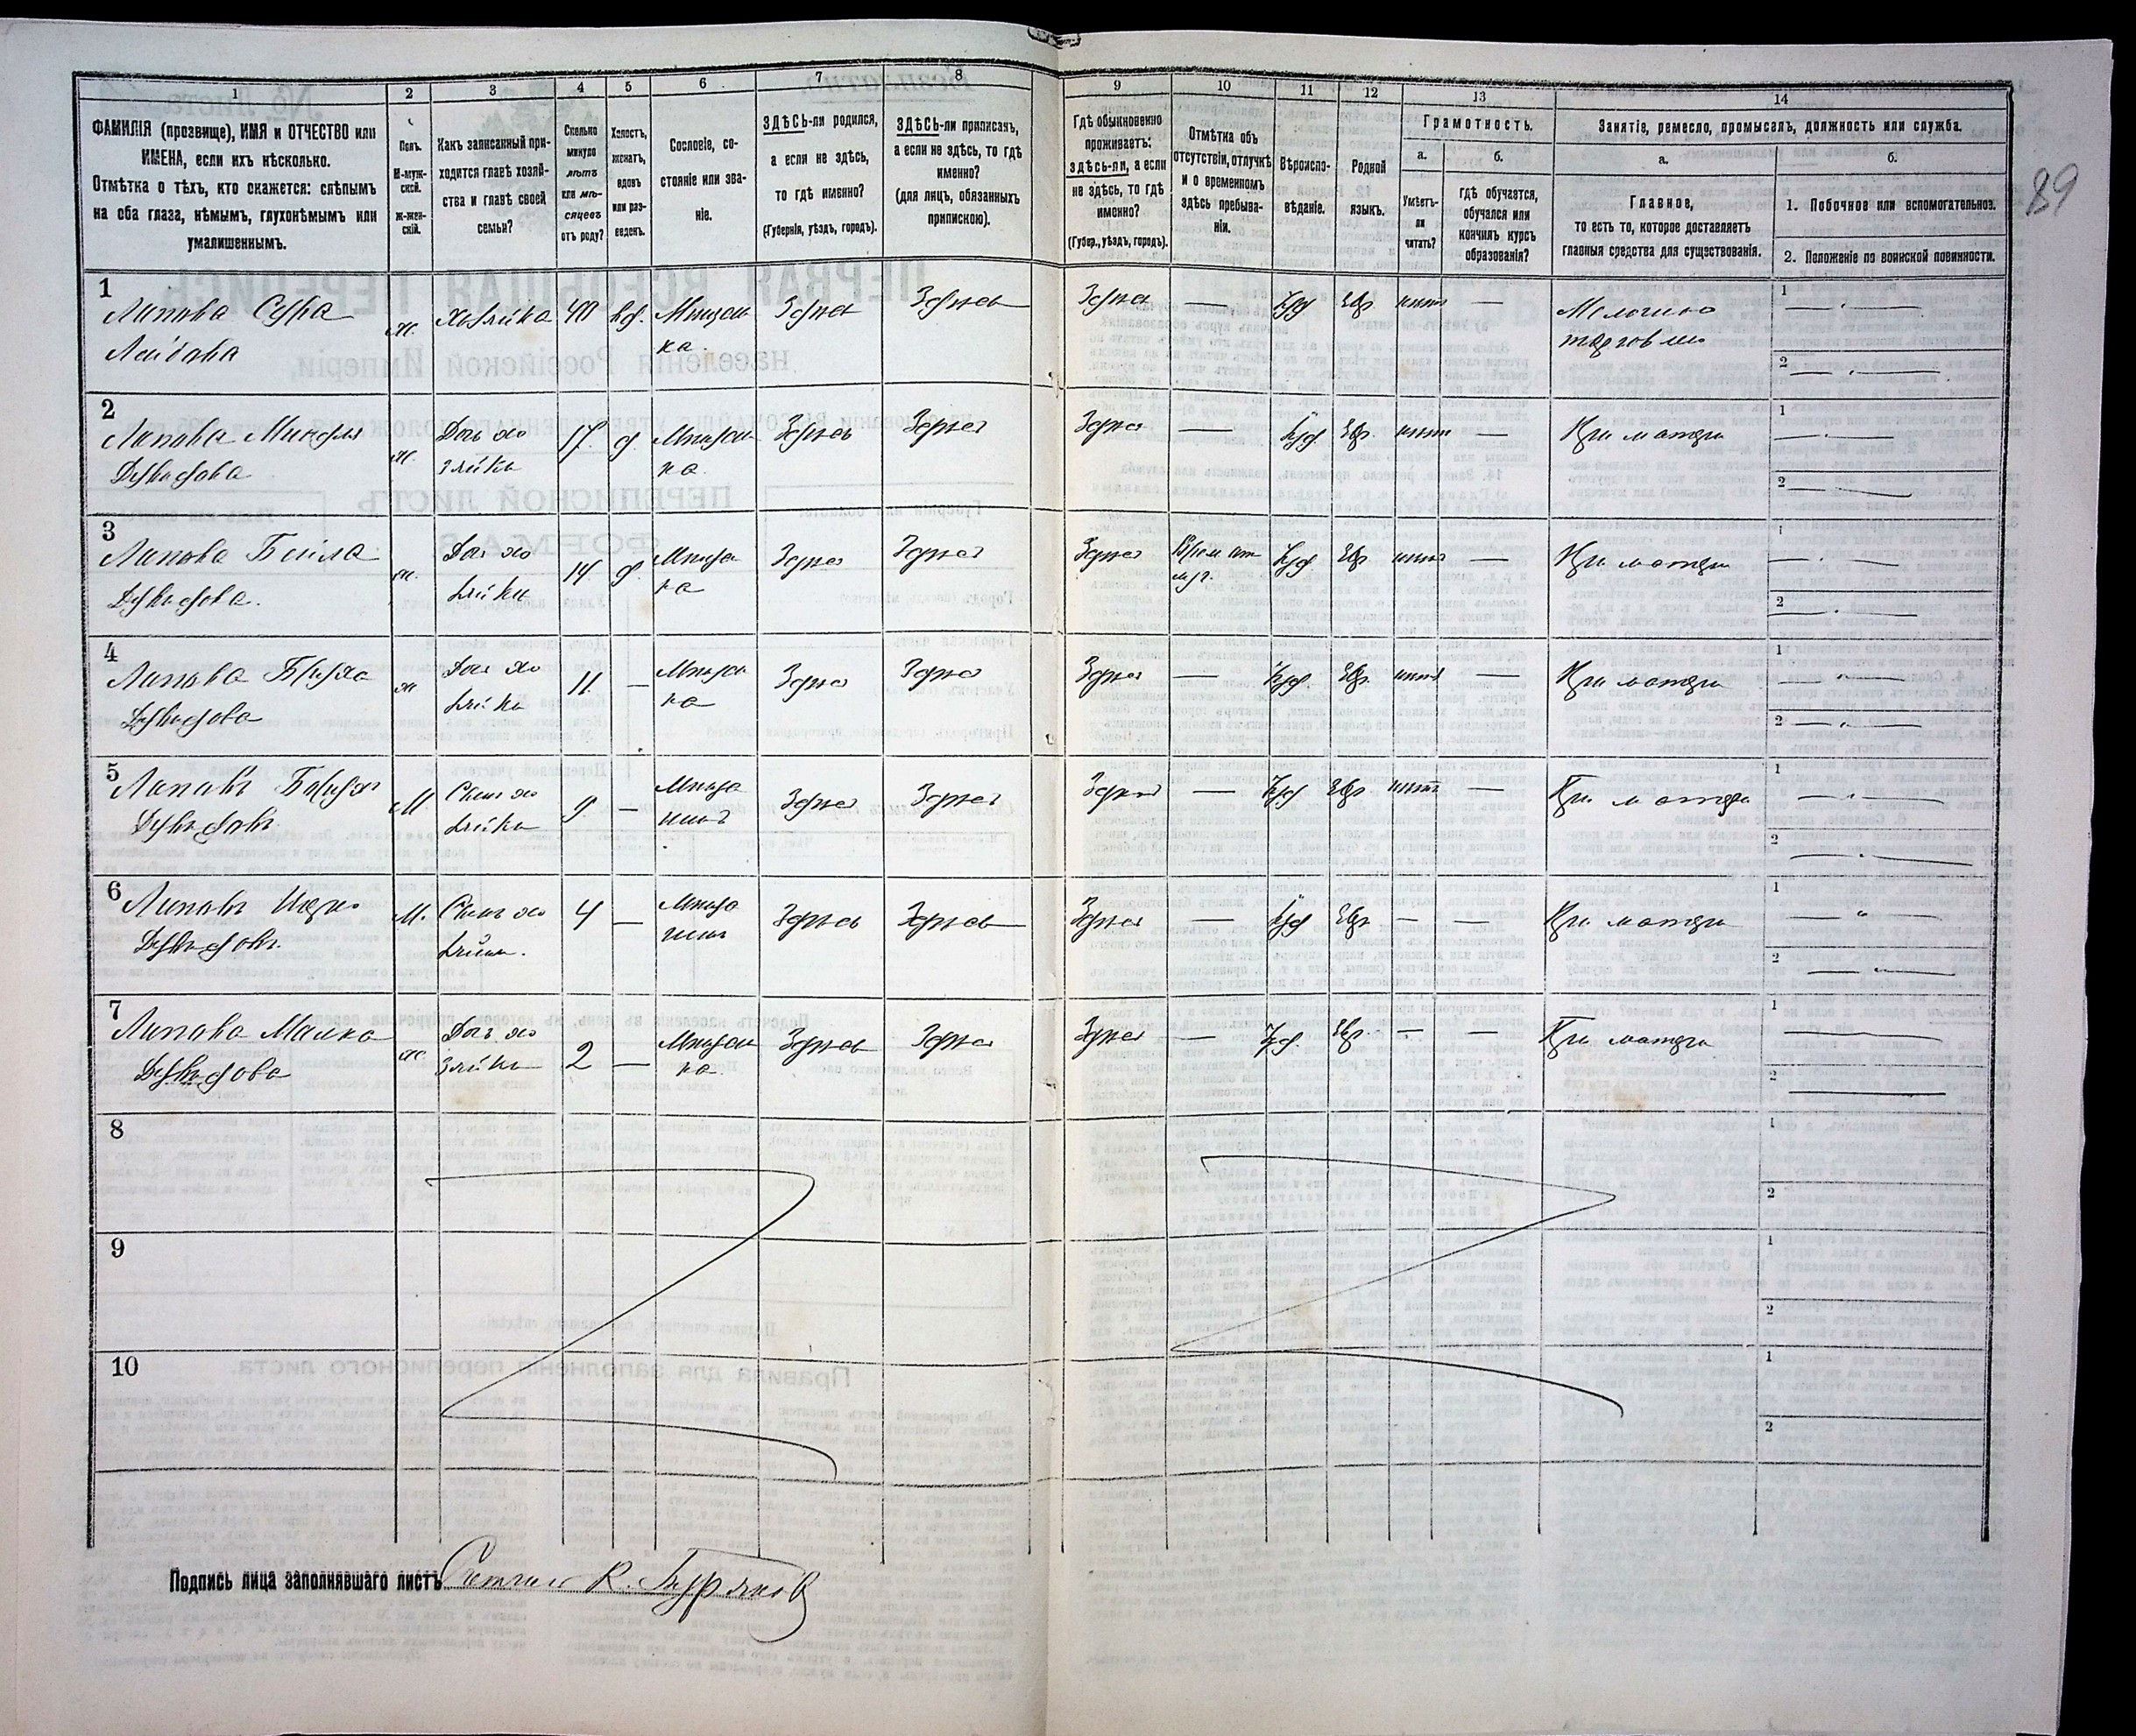 89
1 2 3 4 5 6 7 8 9 10 11 12 13 14
ФАМИЛІЯ (прозвище), ИМЯ и ОТЧЕСТВО или
ИМЕНА, если ихъ нѣсколько.
Отмѣтка о тѣхъ, кто окажется: слѣпымъ
на оба глаза, нѣмымъ, глухонѣмымъ или
умалишеннымъ.
Полъ.
М-муж-
ской.
Ж-жен-
скій.
Какъ записанный при-
ходится главѣ хозяй-
ства и главѣ своей
семьи?
Сколько
минуло
лѣтъ
или мѣ-
сяцевъ
отъ роду?
Холостъ,
женатъ,
вдовъ
или раз-
веденъ.
Сословіе, со-
стояніе или зва-
ніе.
ЗДѢСЬ-ли родился,
а если не здѣсь,
то гдѣ именно?
(Губернія, уѣздъ, городъ).
ЗДѢСЬ-ли приписанъ,
а если не здѣсь, то гдѣ
именно?
(для лицъ, обязанныхъ
припискою).
Гдѣ обыкновенно
проживаетъ:
здѣсь-ли, а если
не здѣсь, то гдѣ
именно?
(Губер., уѣздъ, городъ).
Отмѣтка объ
отсутствіи, отлучкѣ
и о временномъ
здѣсь пребыва-
ніи.
Вѣроиспо-
вѣданіе.
Родной
языкъ.
Грамотность.
а.
Умѣетъ-
ли
читать?
б.
гдѣ обучается,
обучался или
кончилъ курсъ
образованія?
Занятіе, ремесло, промыселъ, должность или служба.
а.
Главное,
то есть то, которое доставляетъ
главныя средства для существованія.
б.
1. Побочное или вспомогательное.
2. Положеніе по воинской повинности.
1 Липова Сура ж. Хозяйка 40 вд. Мѣщан Здѣсь Здѣсь Здѣсь — Іуд Евр. нѣтъ — Мелочная 1 —
Лейбова ка. торговля 2 —
2 Липова Миндля ж. Дочь хо 17 д. Мѣщан Здѣсь Здѣсь Здѣсь — Іуд Евр. нѣтъ — При матери 1 —
Дувидова зяйки ка. 2 —
3 Липова Бейла ж. Дочь хо 14 д. Мѣща Здѣсь Здѣсь Здѣсь Врем от Іуд Евр нѣтъ — При матери 1 —
Дувидова. зяйки ка 2 —
4 Липова Бруха ж Дочь хо 11. — Мѣщан Здѣсь Здѣсь Здѣсь — Іуд. Евр. нѣтъ — При матери 1 —
Дувидова зяйки ка 2 —
5 Липовъ Борух М Сынъ хо 9 — Мѣща Здѣсь Здѣсь Здѣсь — Іуд Евр нѣтъ — При матери 1 —
Дувидовъ. зяйки нинъ 2 —
6 Липовъ Ицко М. Сынъ хо 4 — Мѣща Здѣсь Здѣсь Здѣсь — Іуд Евр — — При матери 1 —
Дувидовъ. зяйки. нинъ 2 —
7 Липова Малка ж. Дочь хо 2 — Мѣщан Здѣсь Здѣсь Здѣсь — Іуд. Евр. — — При матери 1 —
Дувидова зяйки ка. 2 —
8 1
2
9 1
2
10 1
2
Подпись лица заполнявшаго листъ Счетчик К.